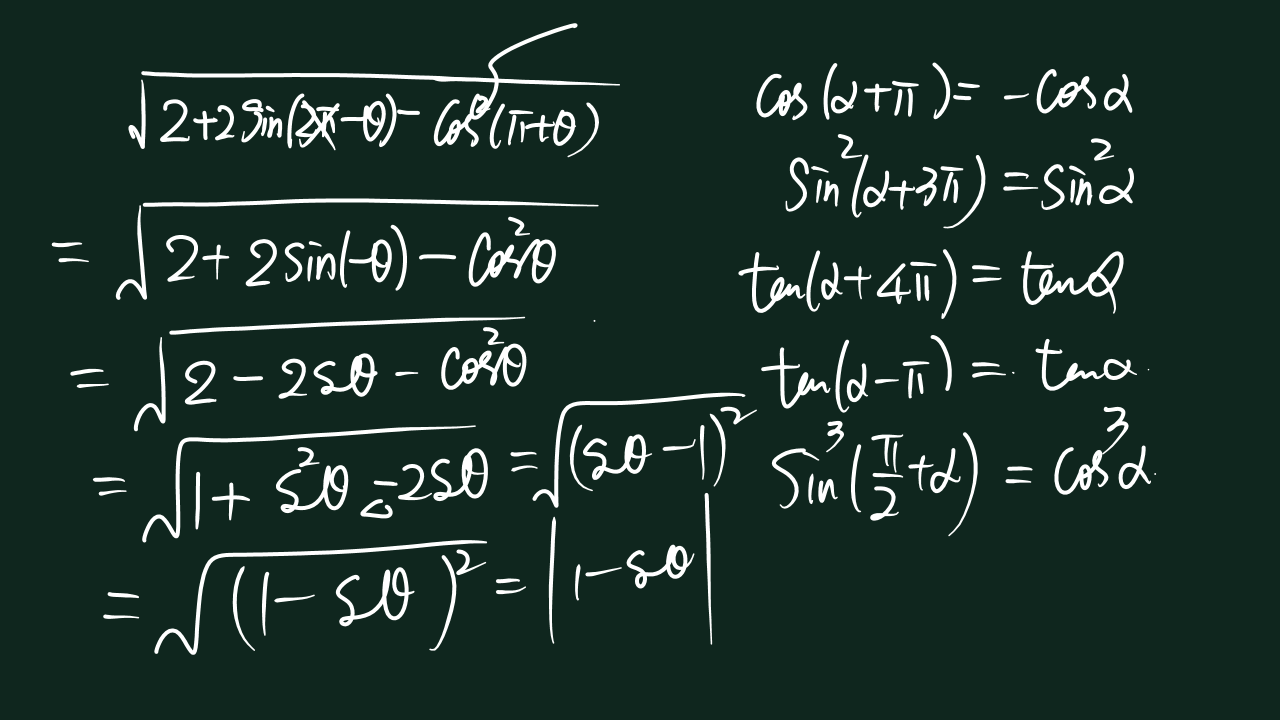 √(2+2Sin(2π-θ)-cos²(π+θ))
= √(2+2sin(-θ)-cos²θ)
= √(2-2sθ-cos²θ)
= √(1+s²θ-2sθ) = √((sθ-1)²)
= √((1-sθ)²) = |1-sθ|
cos(α+π)=-cosα
sin²(α+3π)=sin²α
ten(α+4π)=tenα
ten(α-π)=tenα
sin³(π/2+α)=cos³α